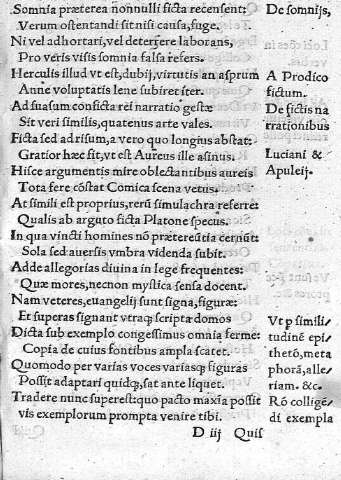 Somnia præterea nonnulli ficta recensent:
Verum ostentandi sit nisi causa, fuge.
Ni vel adhortari, vel deterrere laborans,
Pro veris visis somnia falsa refers.
Herculis illud vt est, dubij, virtutis an asprum
Anne voluptatis lene subiret iter.
Ad suasum conficta rei narratio gestæ
Sit veri similis, quatenus arte vales.
Ficta sed ad risum, a vero quo longius abstat:
Gratior hæc fit, vt est Aureus ille asinus.
Hisce argumentis mire oblectantibus aureis
Tota fere cōstat Comica scena vetus.
At simili est proprius, rerū simulachra referre:
Qualis ab arguto ficta Platone specus.
In qua vincti homines nō prætereūtia cernūt:
Sola sed auersis vmbra videnda subit.
Adde allegorias diuina in lege frequentes:
Quæ mores, necnon mystica sensa docent.
Nam veteres, euangelij sunt signa, figuræ:
Et superas signant vtraq; scripta domos
Dicta sub exemplo congessimus omnia ferme:
Copia de cuius fontibus ampla scatet.
Quomodo per varias voces variasq; figuras
Possit adaptari quidq;, sat ante liquet.
Tradere nunc superest: quo pacto maxīa possit
vis exemplorum prompta venire tibi.
D iij Quis
De somnijs,
A Prodico
fictum.
De fictis na
rrationibus
Luciani &
Apuleij.
Vt p simili
tudinē epi
thetō, meta
phorā, alle
riam. &c.
Rō colligē
di exempla